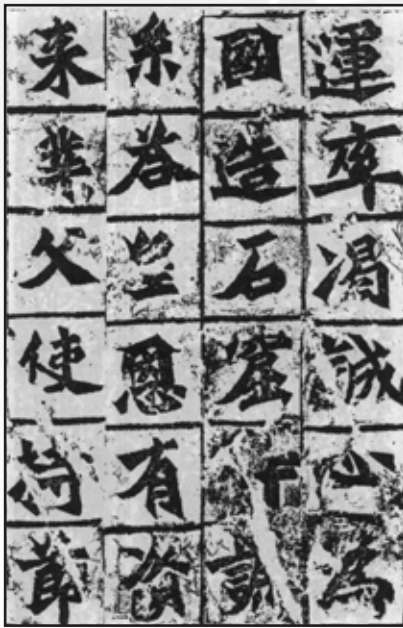 運率渴誠心為
國造石窟
糸荅皇恩有資
来業父使持節